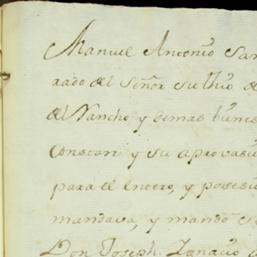 Manuel Antonio San
rado del Señor su thio d
del Rancho y demas biene
Constan y su aprovasi
para el entero, y posesi
mandava, y mandó s
Don Joseph Ignacio